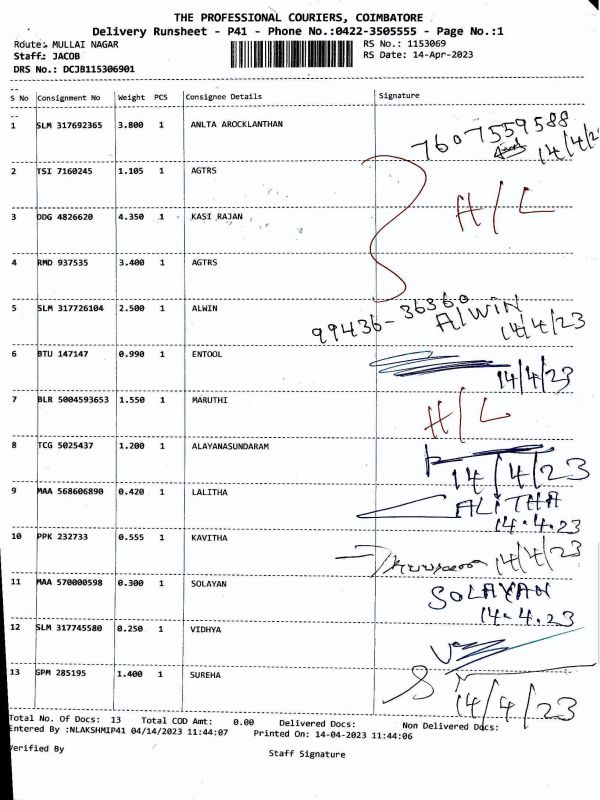 THE PROFESSIONAL COURIERS, COIMBATORE
Delivery Runsheet - P41 - Phone No.:0422-3505555 - Page No.:1
Route: MULLAI NAGAR RS No.: 1153069
Staff: JACOB RS Date: 14-Apr-2023
DRS No.: DCJB115306901
S No Consignment No Weight PCS Consignee Details Signature
1 SLM 317692365 3.800 1 ANLTA AROCKLANTHAN 7607559588
14/4/2
2 TSI 7160245 1.105 1 AGTRS
H/L
3 DDG 4826620 4.350 1 KASI RAJAN
4 RMD 937535 3.400 1 AGTRS
5 SLM 317726104 2.500 1 ALWIN 99436-36360 ALWIN
14/4/23
6 BTU 147147 0.990 1 ENTOOL
14/4/23
7 BLR 5004593653 1.550 1 MARUTHI H/L
8 TCG 5025437 1.200 1 ALAYANASUNDARAM
14/4/23
9 MAA 568606890 0.420 1 LALITHA LALITHA
14.4.23
10 PPK 232733 0.555 1 KAVITHA 14/4/23
11 MAA 570000598 0.300 1 SOLAYAN SOLAYAN
14.4.23
12 SLM 317745580 0.250 1 VIDHYA
13 GPM 285195 1.400 1 SUREHA
14/4/23
Total No. Of Docs: 13 Total COD Amt: 0.00 Delivered Docs: Non Delivered Docs:
Entered By :NLAKSHMIP41 04/14/2023 11:44:07 Printed On: 14-04-2023 11:44:06
Verified By Staff Signature